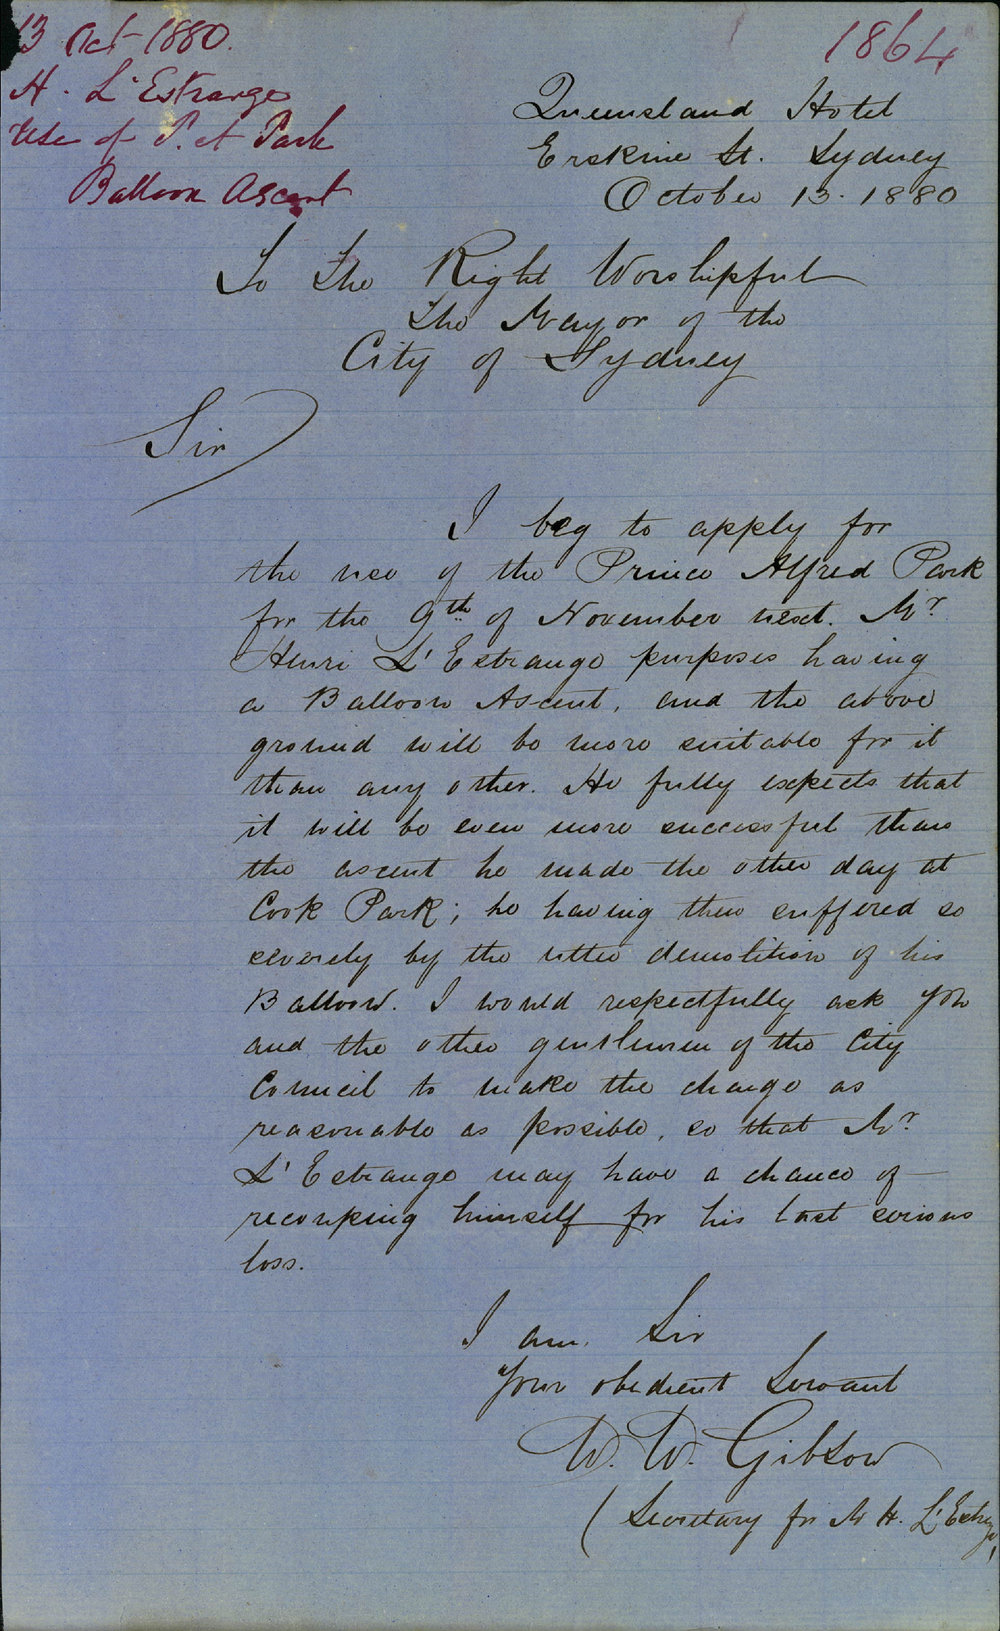 13 Oct 1880.
H. L'Estrange
Use of P. A Park
Balloon Ascent
1864
Queensland Hotel
Erskine St. Sydney
October 13. 1880
To The Right Worshipful
The Mayor of the
City of Sydney
Sir
I beg to apply for
the use of the Prince Alfred Park
for the 9th of November next. Mr.
Henri L'Estrange purposes having
a Balloon Ascent, and the above
ground will be more suitable for it
than any other. He fully expects that
it will be even more successful than
the ascent he made the other day at
Cook Park; he having then suffered so
severely by the utter demolition of his
Balloon. I would respectfully ask you
and the other gentlemen of the City
Council to make the charge as
reasonable as possible, so that Mr.
L'Estrange may have a chance of
recouping himself for his last serious
loss.
I am, Sir
Your obedient Servant
W. W. Gibson
(Secretary for Mr H. L'Estrange)